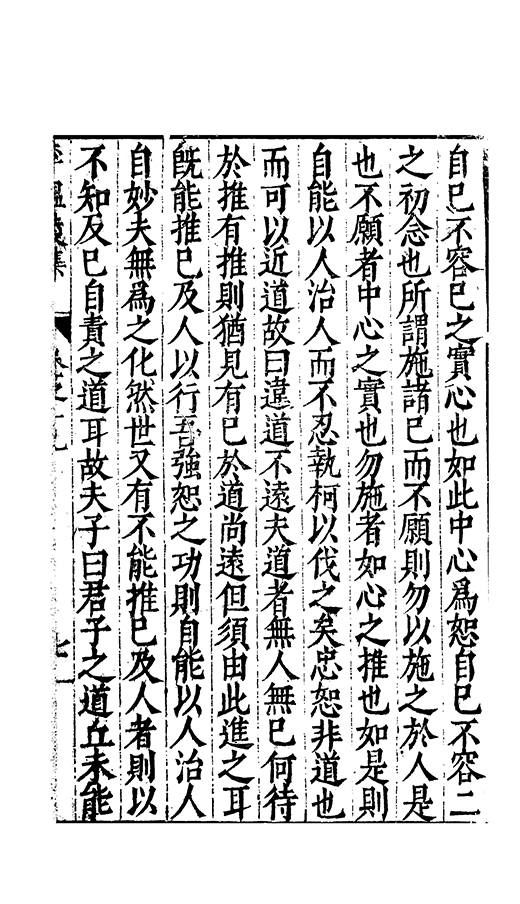 自己不容已之實心也如此中心爲恕自己不容二
之初念也所謂施諸己而不願則勿以施之於人是
也不願者中心之實也勿施者如心之推也如是則
自能以人治人而不忍執柯以伐之矣忠恕非道也
而可以近道故曰違道不遠夫道者無人無已何待
於推有推則猶見有已於道尚遠但須由此進之耳
既能推已及人以行吾強恕之功則自能以人治人
自妙夫無爲之化然世又有不能推已及人者則以
不知反已自責之道耳故夫子曰君子之道丘未能
李溫陵集